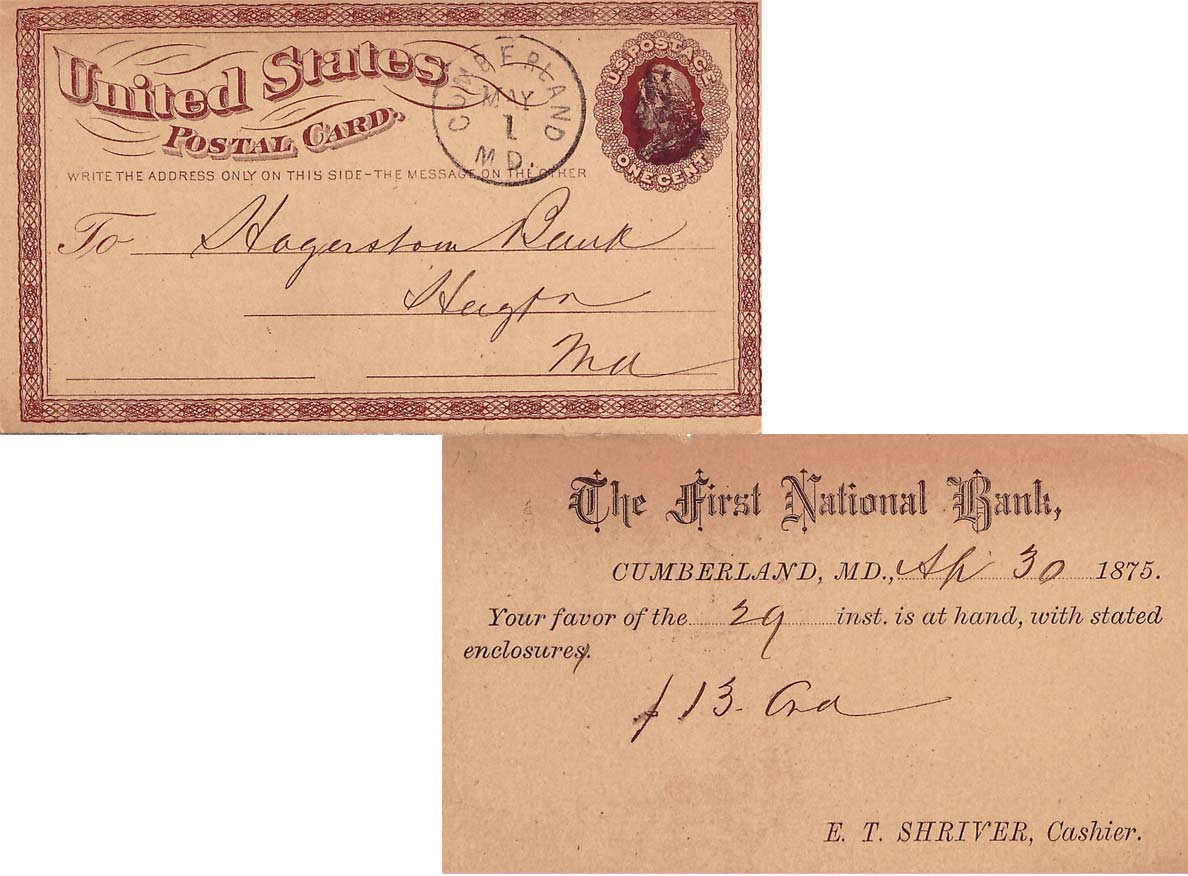 United States
POSTAL CARD.
CUMBERLAND
MAY
1
MD.
U.S. POSTAGE
ONE CENT
WRITE THE ADDRESS ONLY ON THIS SIDE–THE MESSAGE ON THE OTHER
To Hagerstown Bank
Md
The First National Bank,
CUMBERLAND, MD., Ap 30 1875.
Your favor of the 29 inst. is at hand, with stated
enclosures.
13.
E. T. SHRIVER, Cashier.